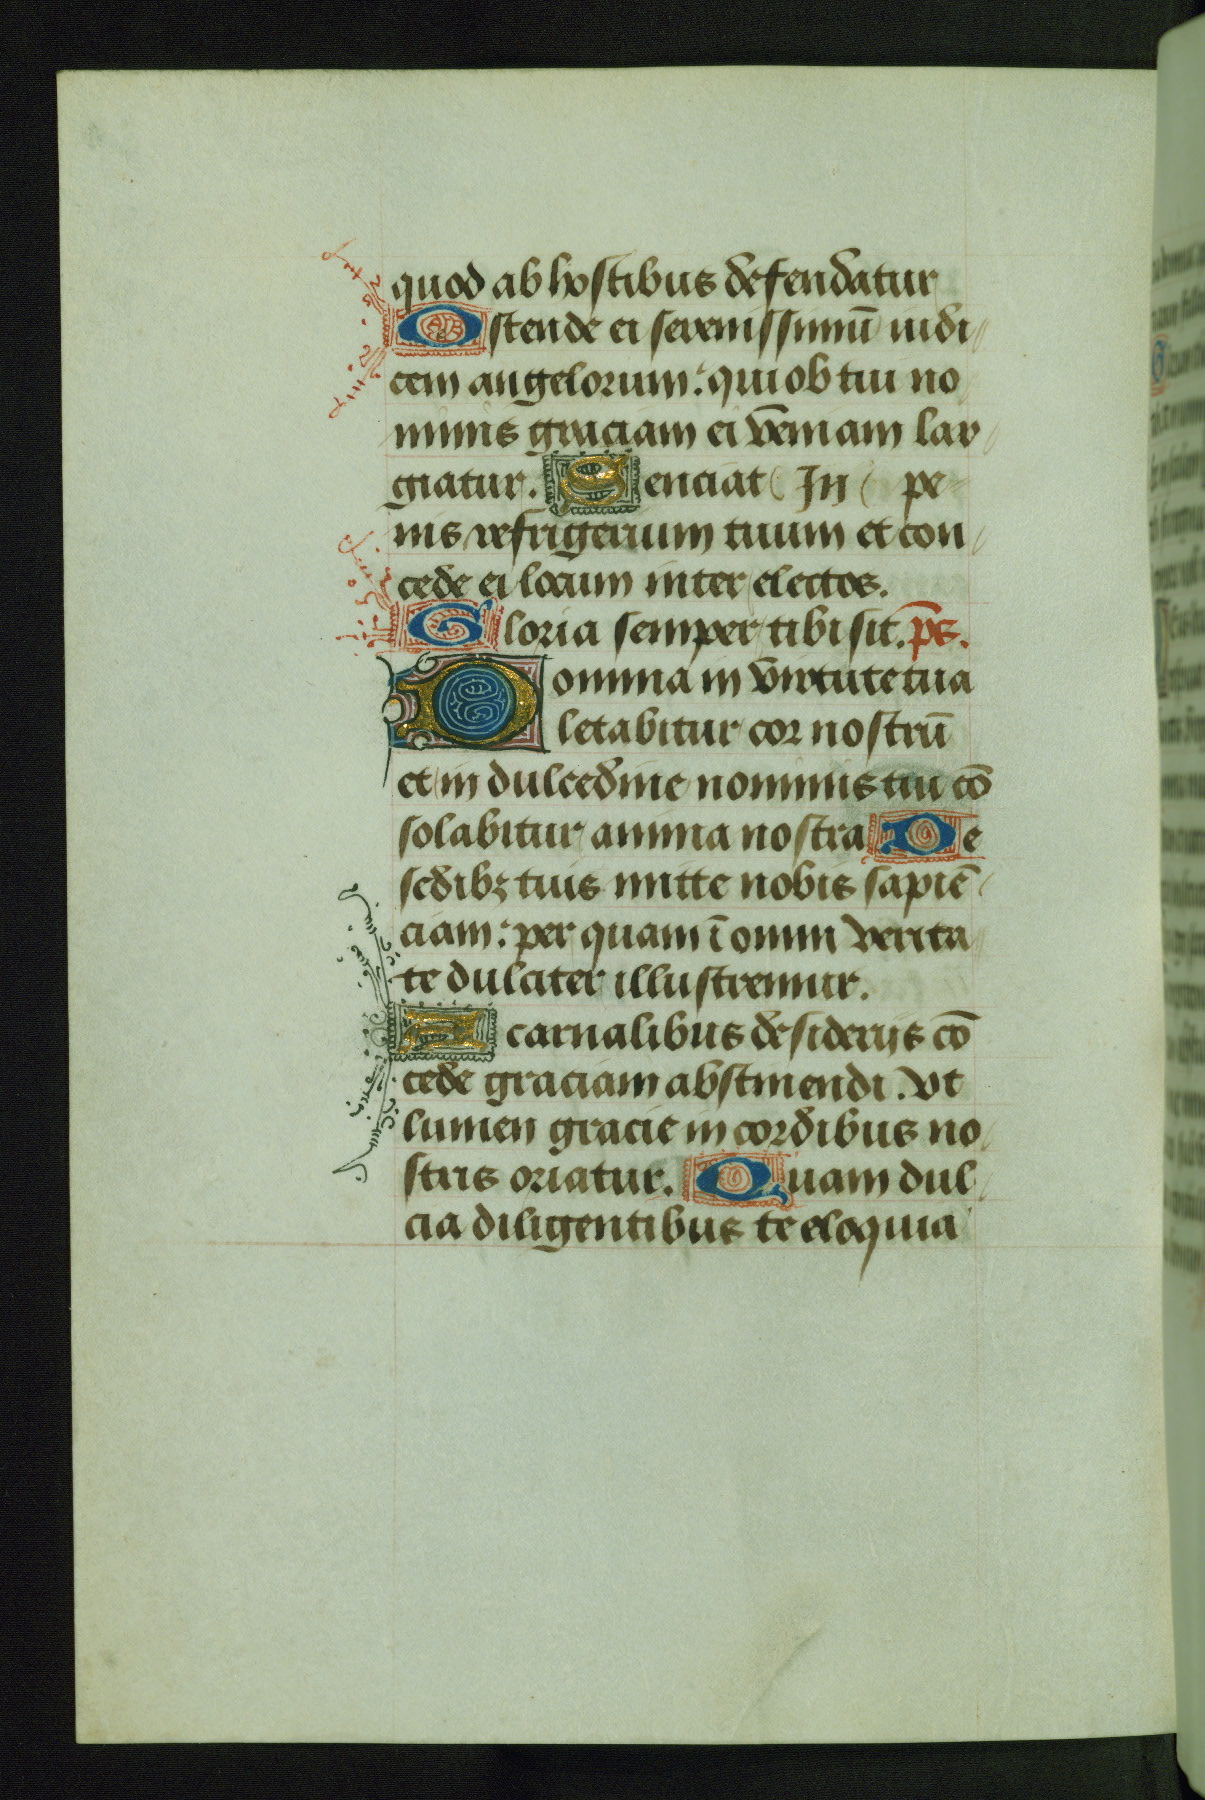 quod ab hostibus defendatur
Ostende ei serenissimū iudi
cem angelorum: qui ob tui no
minis graciam ei veniam lar
giatur. Senciat In pe
nis refrigerium tuum et con
cede ei locum inter electos.
Gloria semper tibi sit. p̄s.
Domina in virtute tua
letabitur cor nostrū
et in dulcedine nominis tui cō
solabitur anima nostra De
sedibꝫ tuis mitte nobis sapiē
ciam: per quam ī omni verita
te dulciter illustremur.
A carnalibus desiderijs cō
cede graciam abstinendi. vt
lumen gracie in cordibus no
stris oriatur. Quam dul
cia diligentibus te eloquia